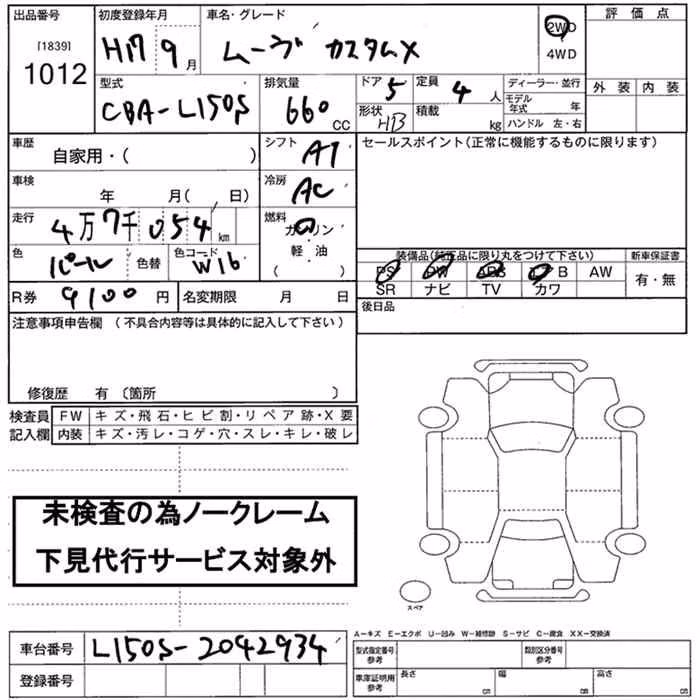 出品番号 初度登録年月 車名・グレード 評価点
[1839] H17 9月 ムーヴ カスタムX 2WD
1012 4WD
型式 排気量 ドア 5 定員 4人 ディーラー・並行 外装 内装
CBA-L150S 660 CC 形状 HB 積載 kg モデル年式 年
ハンドル 左・右
車歴 シフト AT セールスポイント(正常に機能するものに限ります)
自家用・( )
車検 冷房 AC
年 月( 日)
走行 4万7千054km 燃料 ガソリン
色 パール 色替 色コード W16 軽・油 装備品(純正品に限り丸をつけて下さい) 新車保証書
( ) PS PW ABS エアB AW 有・無
R券 9100円 名変期限 月 日 SR ナビ TV カワ
注意事項申告欄 (不具合内容等は具体的に記入して下さい) 後日品
修復歴 有 〔箇所 〕
検査員 FW キズ・飛石・ヒビ割・リペア跡・X要
記入欄 内装 キズ・汚レ・コゲ・穴・スレ・キレ・破レ
未検査の為ノークレーム
下見代行サービス対象外
スペア
A-キズ E-エクボ U-凹み W-補修跡 S-サビ C-腐食 XX-交換済
車台番号 L150S-2042934 型式指定番号 参考 類別区分番号 参考
登録番号 車庫証明用 参考 長さ cm 幅 cm 高さ cm